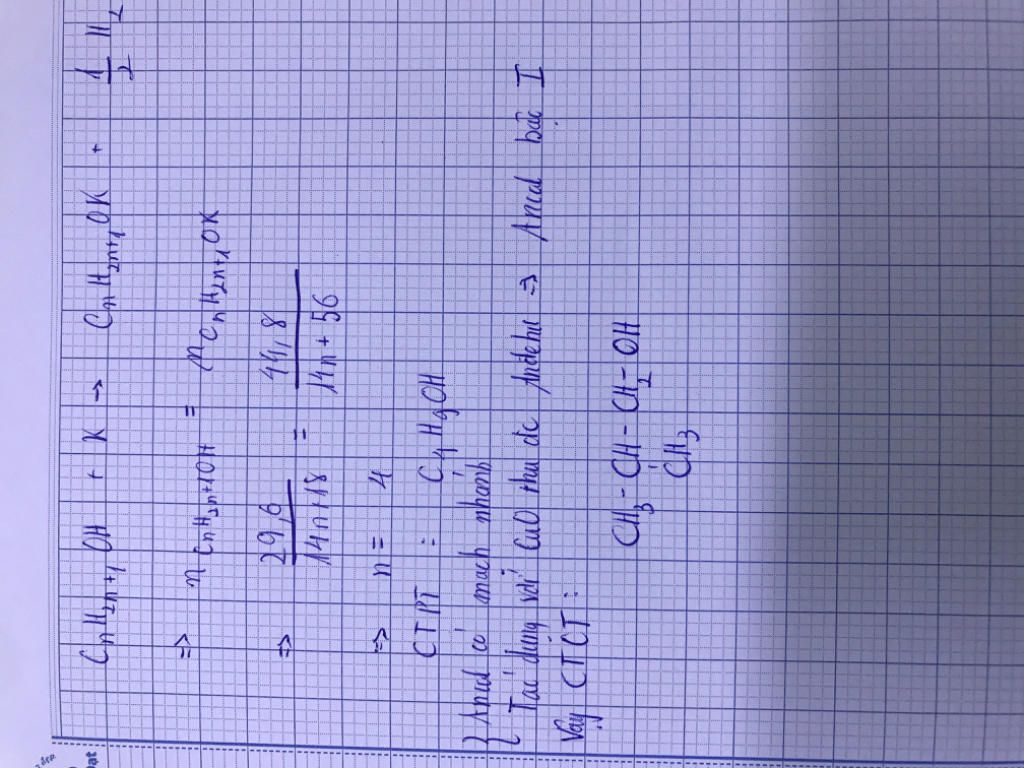 CnH2n+1OH + K → CnH2n+1OK + 1/2 H2
=> nCnH2n+1OH = nCnH2n+1OK
=> 29,6/14n+18 = 44,8/14n+56
=> n = 4
CTPT : C4H9OH
{ Ancol có mạch nhánh
Tác dụng với CuO thu đc Andehit => Ancol bậc I
Vậy CTCT :
CH3 - CH - CH2 - OH
CH3